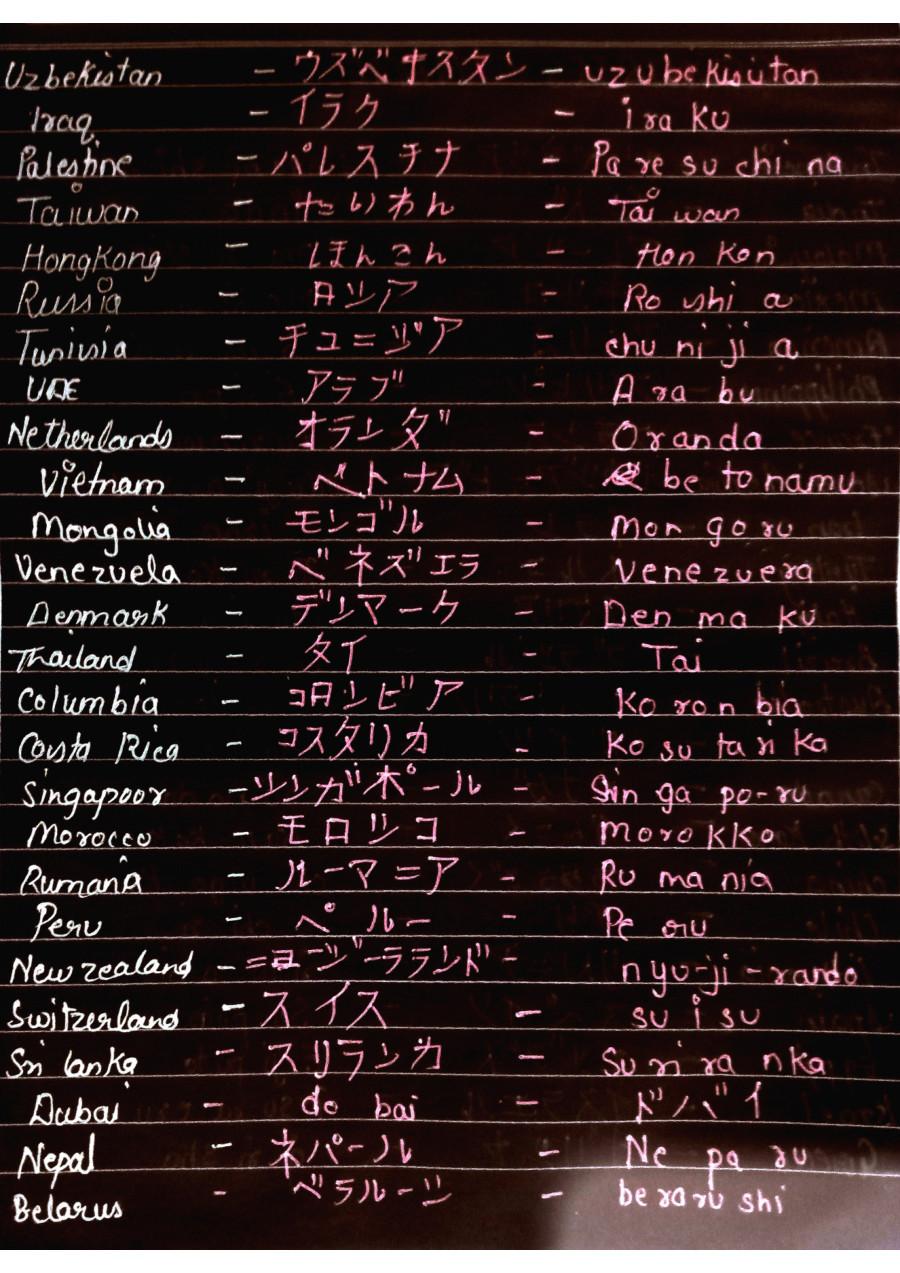 Uzbekistan - ウズベキスタン - uzubekisutan
Iraq - イラク - i ra ku
Palestine - パレスチナ - Pa re su chi na
Taiwan - たいわん - Tai wan
HongKong - ほんこん - Hon Kon
Russia - ロシア - Ro shi a
Tunisia - チュニジア - chu ni ji a
UAE - アラブ - A ra bu
Netherlands - オランダ - Oranda
Vietnam - ベトナム - be to namu
Mongolia - モンゴル - Mon go ru
Venezuela - ベネズエラ - venezuera
Denmark - デンマーク - Den ma ku
Thailand - タイ - Tai
Columbia - コロンビア - Ko ron bia
Costa Rica - コスタリカ - Ko su ta ri ka
Singapoor - シンガポール - Sin ga po-ru
Morocco - モロッコ - morokko
Rumania - ルーマニア - Ru ma nia
Peru - ペルー - Pe ru
New zealand - ニュージーララランド - nyu-ji-rando
Switzerland - スイス - su i su
Sri lanka - スリランカ - Su ri ra nka
Dubai - do bai - ドバイ
Nepal - ネパール - Ne pa ru
Belarus - ベラルーシ - be ra ru shi